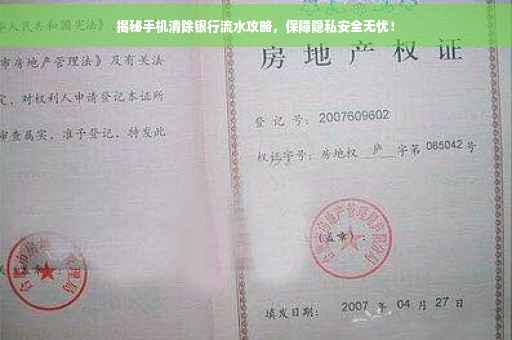 揭秘手机清除银行流水攻略，保障隐私安全无忧！
人民共和国宪法》
市房地产管理法》及有关法
定，对权利人申请登记本证所
审查属实，准予登记，特发此
房地产权证
登 记 号：2007609602
权证字号：房地权 庐 字第 085042 号
(盖章)：
填发日期： 2007 年 04 月 27 日